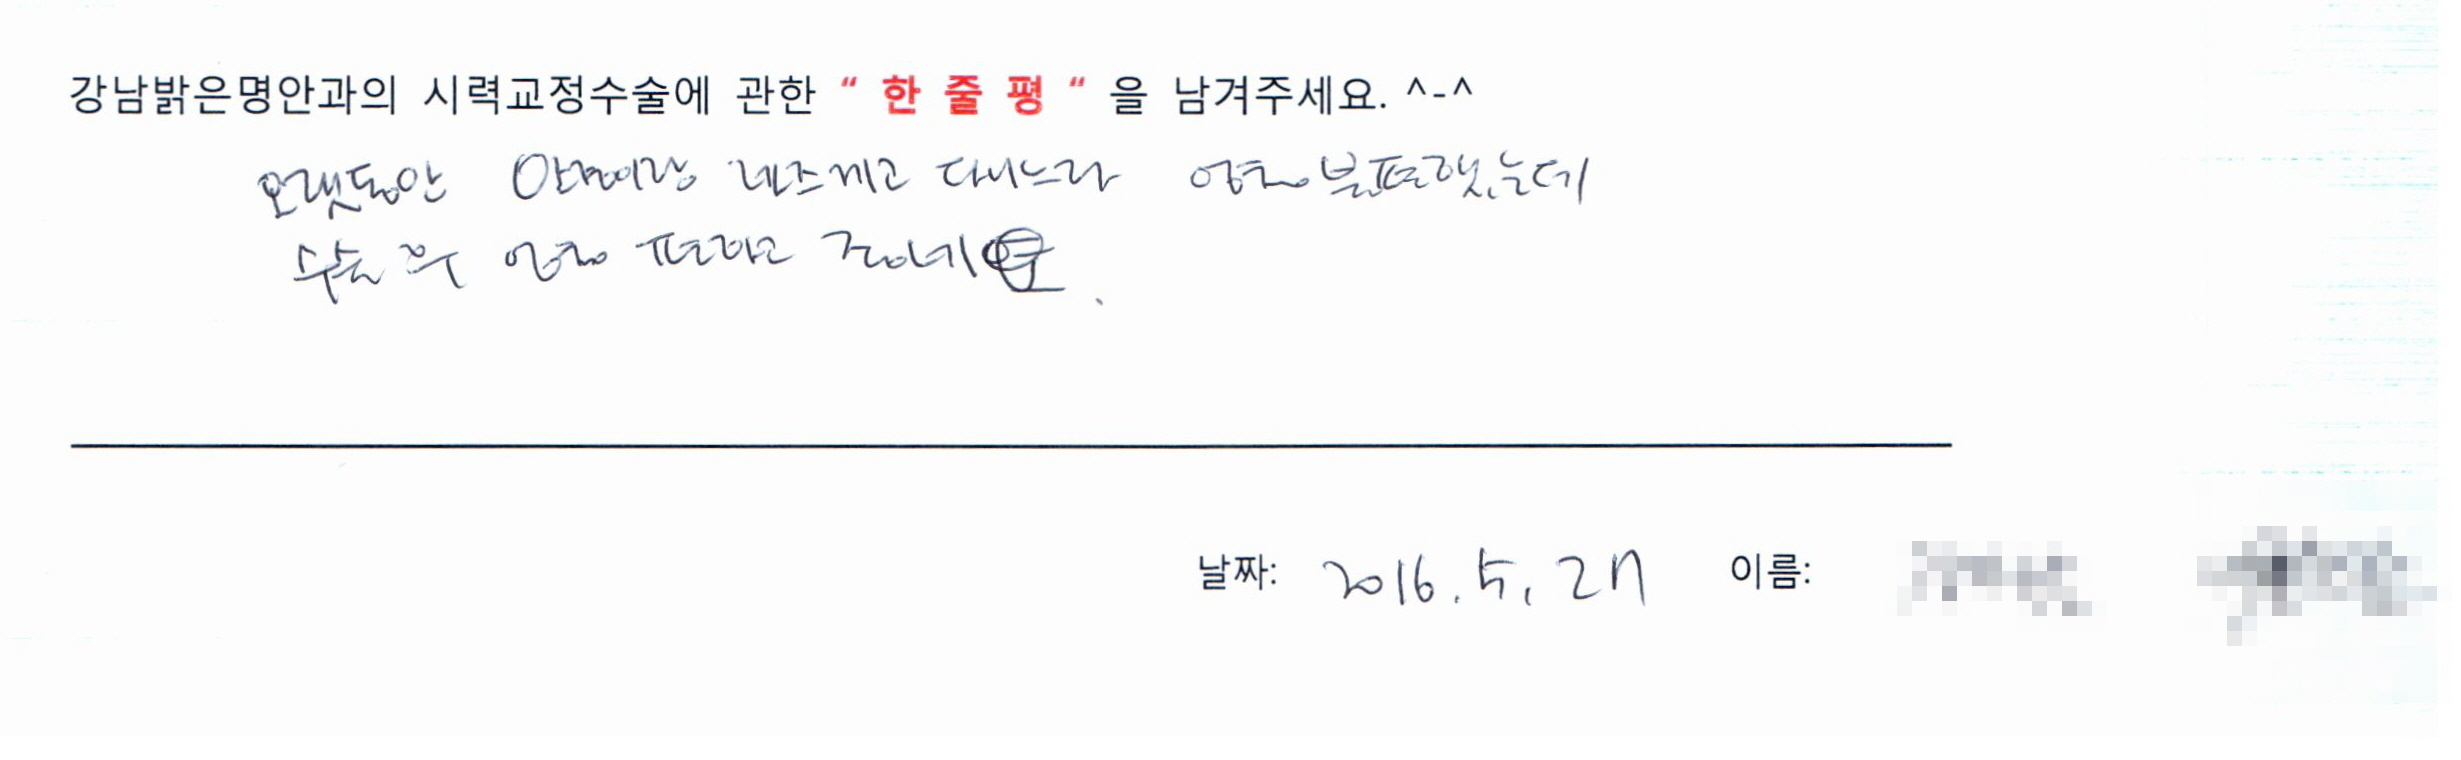 강남밝은명안과의 시력교정수술에 관한 “ 한 줄 평 “ 을 남겨주세요. ^-^
오랫동안 안경이랑 렌즈끼고 다니느라 엄청 불편했는데
수술 후 엄청 편하고 좋네요.
날짜: 2016. 5. 27 이름: